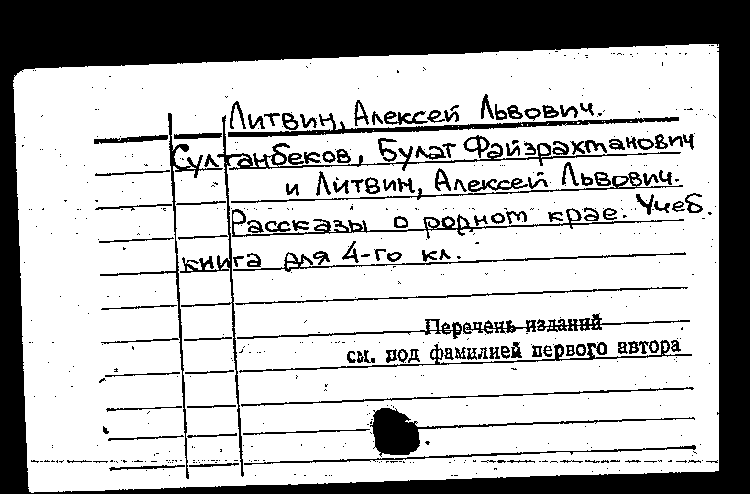 Литвин, Алексей Львович.
Султанбеков, Булат Файзрахманович
и Литвин, Алексей Львович.
Рассказы о родном крае. Учеб.
книга для 4-го кл.
Перечень изданий
см. под фамилией первого автора